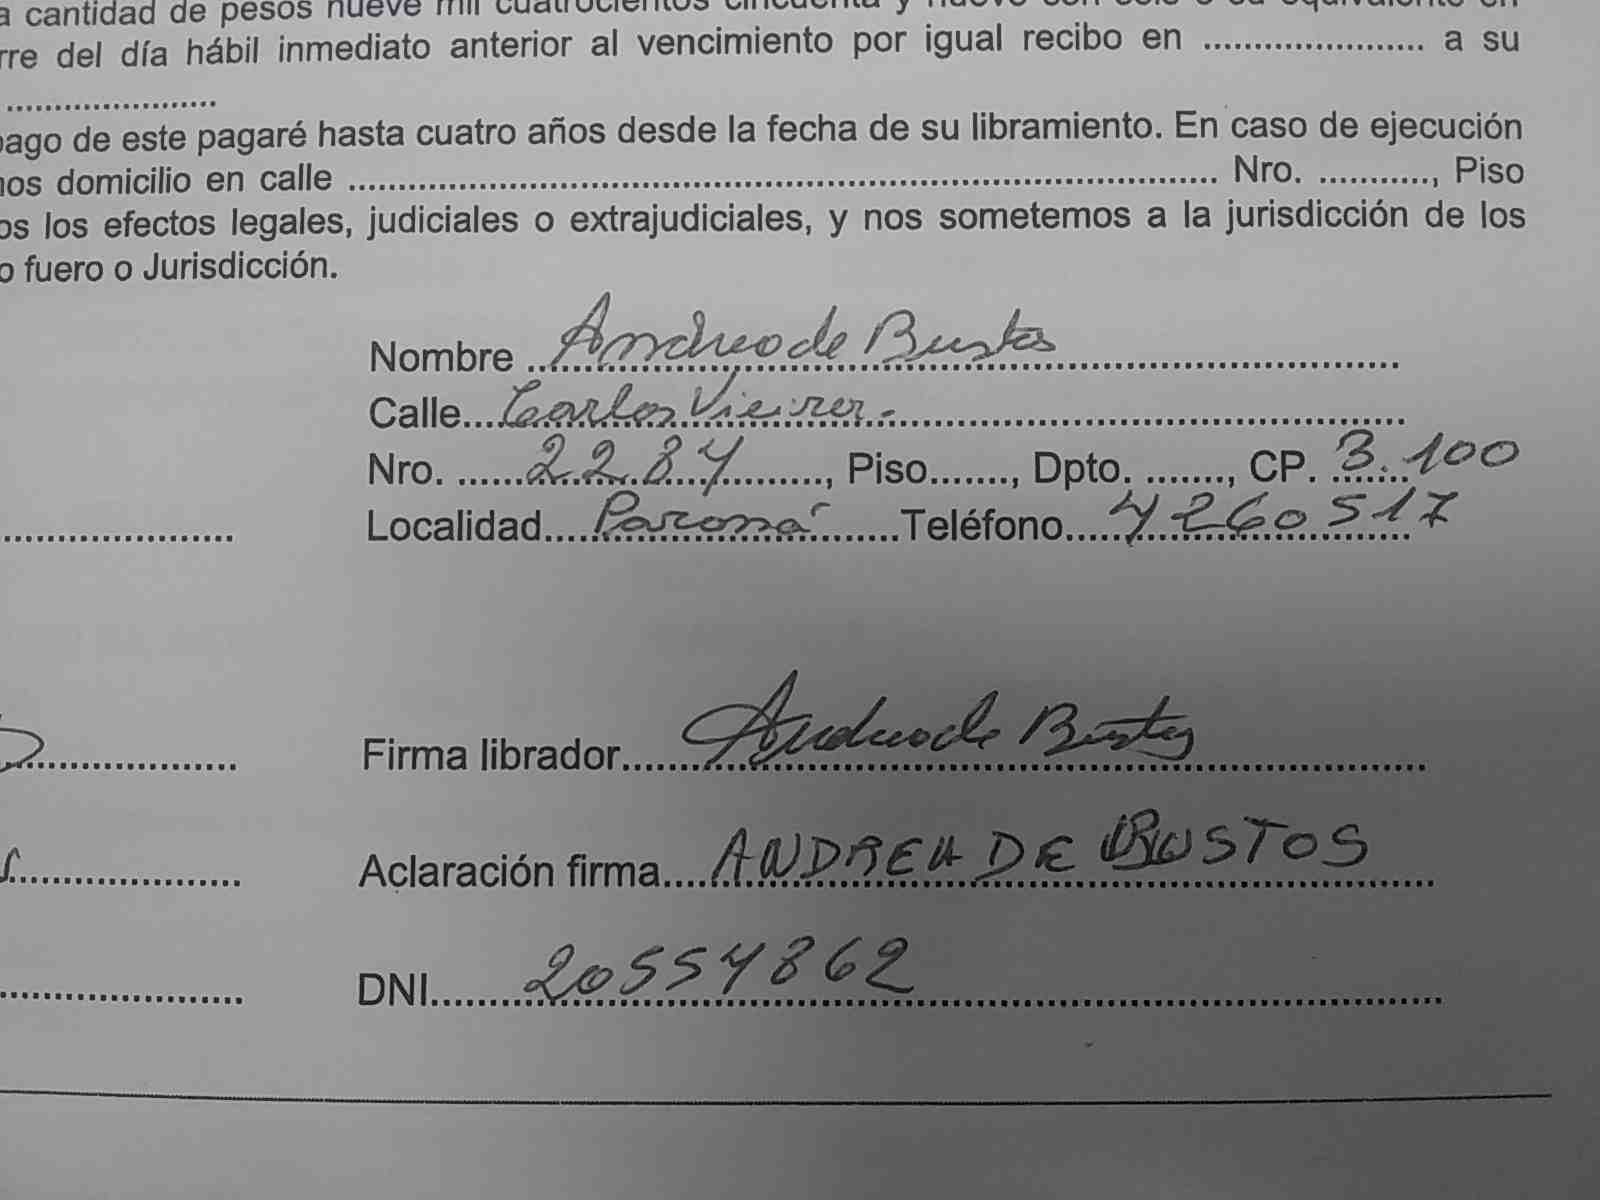 a cantidad de pesos nueve mil cuatrocientos cincuenta y nueve con seis o su equivalente en
rre del día hábil inmediato anterior al vencimiento por igual recibo en ...................... a su
.....................
pago de este pagaré hasta cuatro años desde la fecha de su libramiento. En caso de ejecución
nos domicilio en calle ........................................................................................ Nro. ..........., Piso
os los efectos legales, judiciales o extrajudiciales, y nos sometemos a la jurisdicción de los
o fuero o Jurisdicción.
Nombre Andrea de Bustos
Calle Carlos Vieirer.
Nro. 2284, Piso......., Dpto. ......., CP. 3.100
Localidad Paraná Teléfono 4260517
Firma librador Andrea de Bustos
Aclaración firma ANDREA DE BUSTOS
DNI 20554862